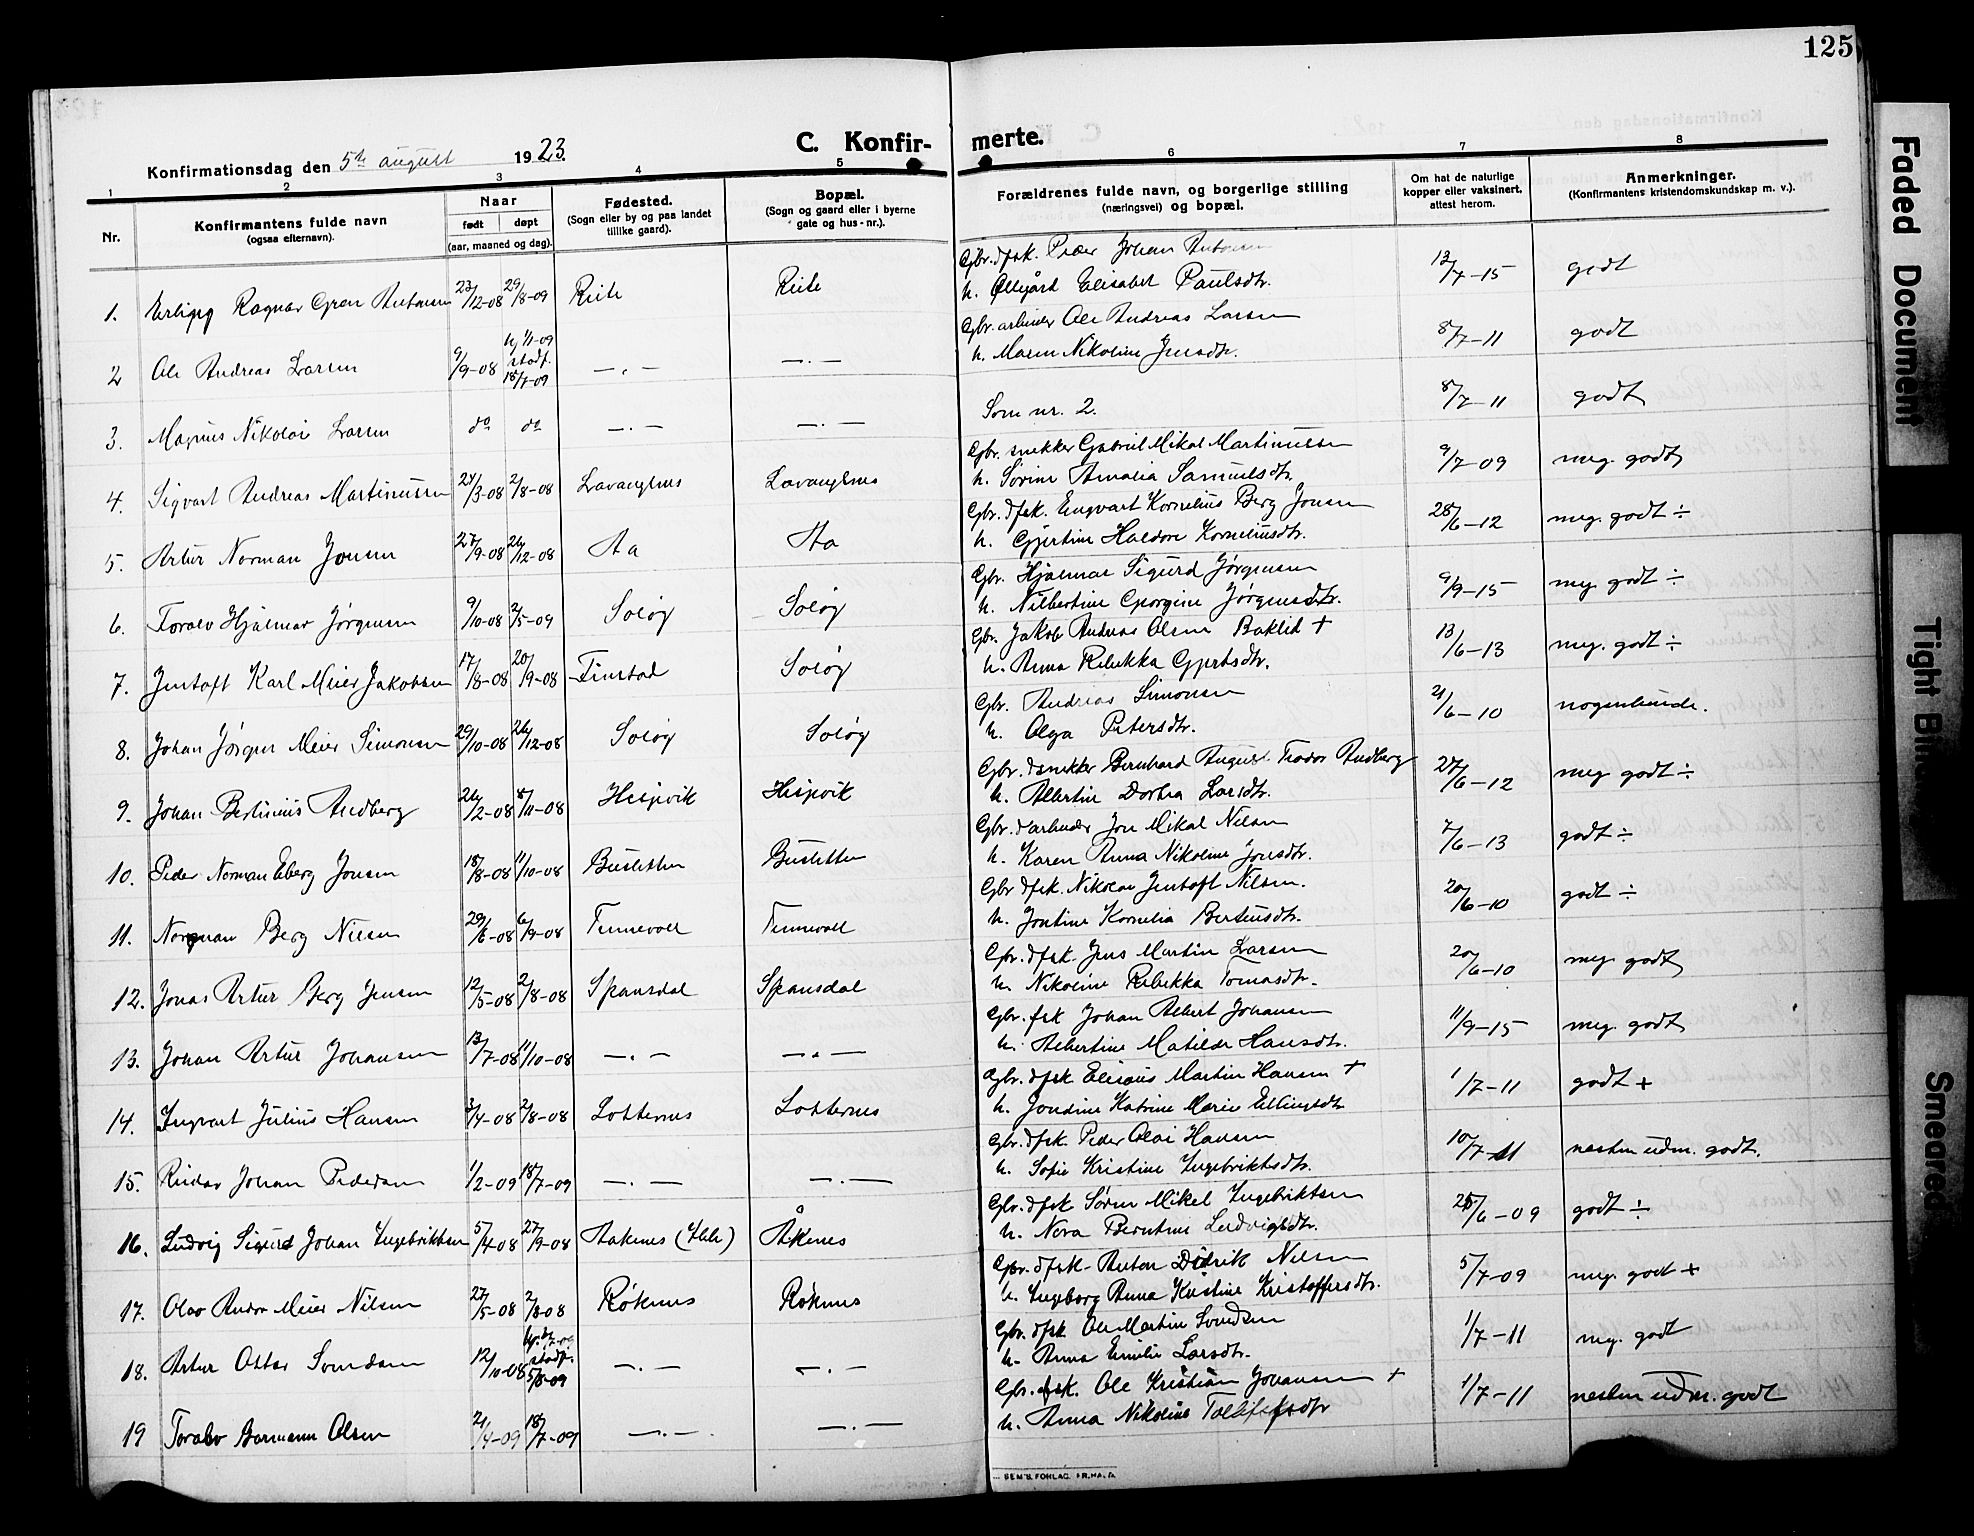 125
Konfirmationsdag den 5te august 1923.
C. Konfirmerte.
1 2 3 4 5 6 7 8
Nr.
Konfirmantens fulde navn
(ogsaa efternavn).
Naar
født døpt
(aar, maaned og dag).
Fødested.
(Sogn eller by og paa landet
tillike gaard).
Bopæl.
(Sogn og gaard eller i byerne
gate og hus-nr.).
Forældrenes fulde navn, og borgerlige stilling
(næringsvei) og bopæl.
Om hat de naturlige
kopper eller vaksinert.
attest herom.
Anmerkninger.
(Konfirmantens kristendomskundskap m. v.).
Gbr. d fsk. Peder Johan Antonsen
1. Ragnar Gren Antonsen 23/12-08 29/8-09 h. Elisabet Paulsdtr. 13/7-15 godt
Gbr. arbeider Ole Andreas Larsen
2 Ole Andreas Larsen 9/9-08 stadf. 18/7-09 —.— —.— h. Maren Nikoline Jensdtr. 8/7-11 godt
3. Magnus Nikolai Larsen do do —.— —.— Som nr. 2. 8/7-11 godt
Gbr. snekker Gabriel Mikal Martinussen
4. Sigvart Andreas Martinussen 24/3-08 2/8-08 Lavangsnes Lavangsnes h. Sørine Amalia Samuelsdtr. 9/7-09 meg. godt
Gbr. d fsk. Engvart Kornelius Berg Jonsen
5. Artur Norman Jonsen 27/9-08 26/12-08 Aa Aa h. Gjertine Haldora Korneliusdtr. 28/6-12 meg. godt ÷
Gbr. Hjalmar Sigurd Jørgensen
6. Toralv Hjalmar Jørgensen 9/10-08 2/5-09 Soløy Soløy h. Nilbertine Georgine Jørgensdtr. 9/9-15 meg. godt ÷
Gbr. Jakob Andreas Olsen Baklid +
7. Jentoft Karl Meier Jakobsen 17/8-08 20/9-08 Finstad Soløy h. Anna Rebekka Gjertsdtr. 13/6-13 meg. godt ÷
Gbr. Andreas Simonsen
8. Johan Jørgen Meier Simonsen 29/10-08 26/12-08 Soløy Soløy h. Olga Petersdtr. 21/6-10 nogenlunde.
Gbr. d snekker Bernhard August Teodor Andberg
9. Johan Bertinius Andberg 26/2-08 8/11-08 Hesjevik Hesjevik h. Albertine Dortea Larsdtr. 27/6-12 meg godt ÷
Gbr. d arbeider Jon Mikal Nilsen
10. Peder Norman Eberg Jonsen 18/8-08 11/10-08 Busletten Busletten h. Karen Anna Nikoline Jonsdtr. 7/6-13 godt ÷
Gbr d fsk. Nikolai Jentoft Nilsen.
11. Norman Berg Nilsen 29/6-08 6/9-08 Tennevoll Tennevoll h. Jentine Kornelia Berteusdtr. 20/6-10 godt ÷
Gbr. d fsk. Jens Martin Larsen
12. Jonas Artur Berg Jensen 12/5-08 2/8-08 Spansdal Spansdal h. Nikoline Rebekka Tomasdtr. 20/6-10 meg. godt
Gbr. fsk Johan Albert Johansen
13. Johan Artur Johansen 13/7-08 11/10-08 —.— —.— h. Albertine Matilde Hansdtr. 11/9-15 meg. godt
Gbr. d fsk Elisæus Martin Hansen +
14. Ingvart Julius Hansen 3/4-08 2/8-08 Lotternes Lotternes h. Jondine Katrine Marie Ellingsdtr 1/7-11 godt +
Gbr. d fsk. Peder Olai Hansen
15. Reidar Johan Pedersen 1/2-09 18/7-09 —.— —.— h. Sofie Kristine Ingebriktsdtr. 10/7-11 nesten udm. godt.
Gbr. d fsk Søren Mikal Ingebriktsen
16. Ludvig Sigurd Johan Ingebriktsen 5/4-08 27/9-08 Aaknes Åknes h. Nora Berntine Ludvigsdtr. 25/6-09 godt ÷
Gbr. d fsk- Anton Didrik Nilsen
17. Olav Andor Meier Nilsen 27/5-08 2/8-08 Røknes Røknes h. Ingeborg Anna Kristine Kristoffersdtr. 5/7-09 meg. godt +
Gbr. d fsk. Ole Martin Svendsen
18. Artur Ottar Svendsen 12/10-08 stadf. 5/8-09 —.— —.— h. Anna Emilie Larsdtr. 1/7-11 meg. godt
Gbr. d fsk. Ole Kristian Johansen +
19 Toralv Olsen 21/4-09 18/7-09 —.— —.— h. Anna Nikoline Tollefsdtr 1/7-11 nesten udm. godt
SEM'S FORLAG. FR.HALD.
Faded Document
Tight Bin
Smeared